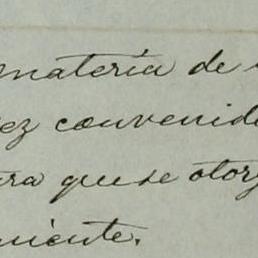 materia de
ez convenid
ra que se otorg
niente.